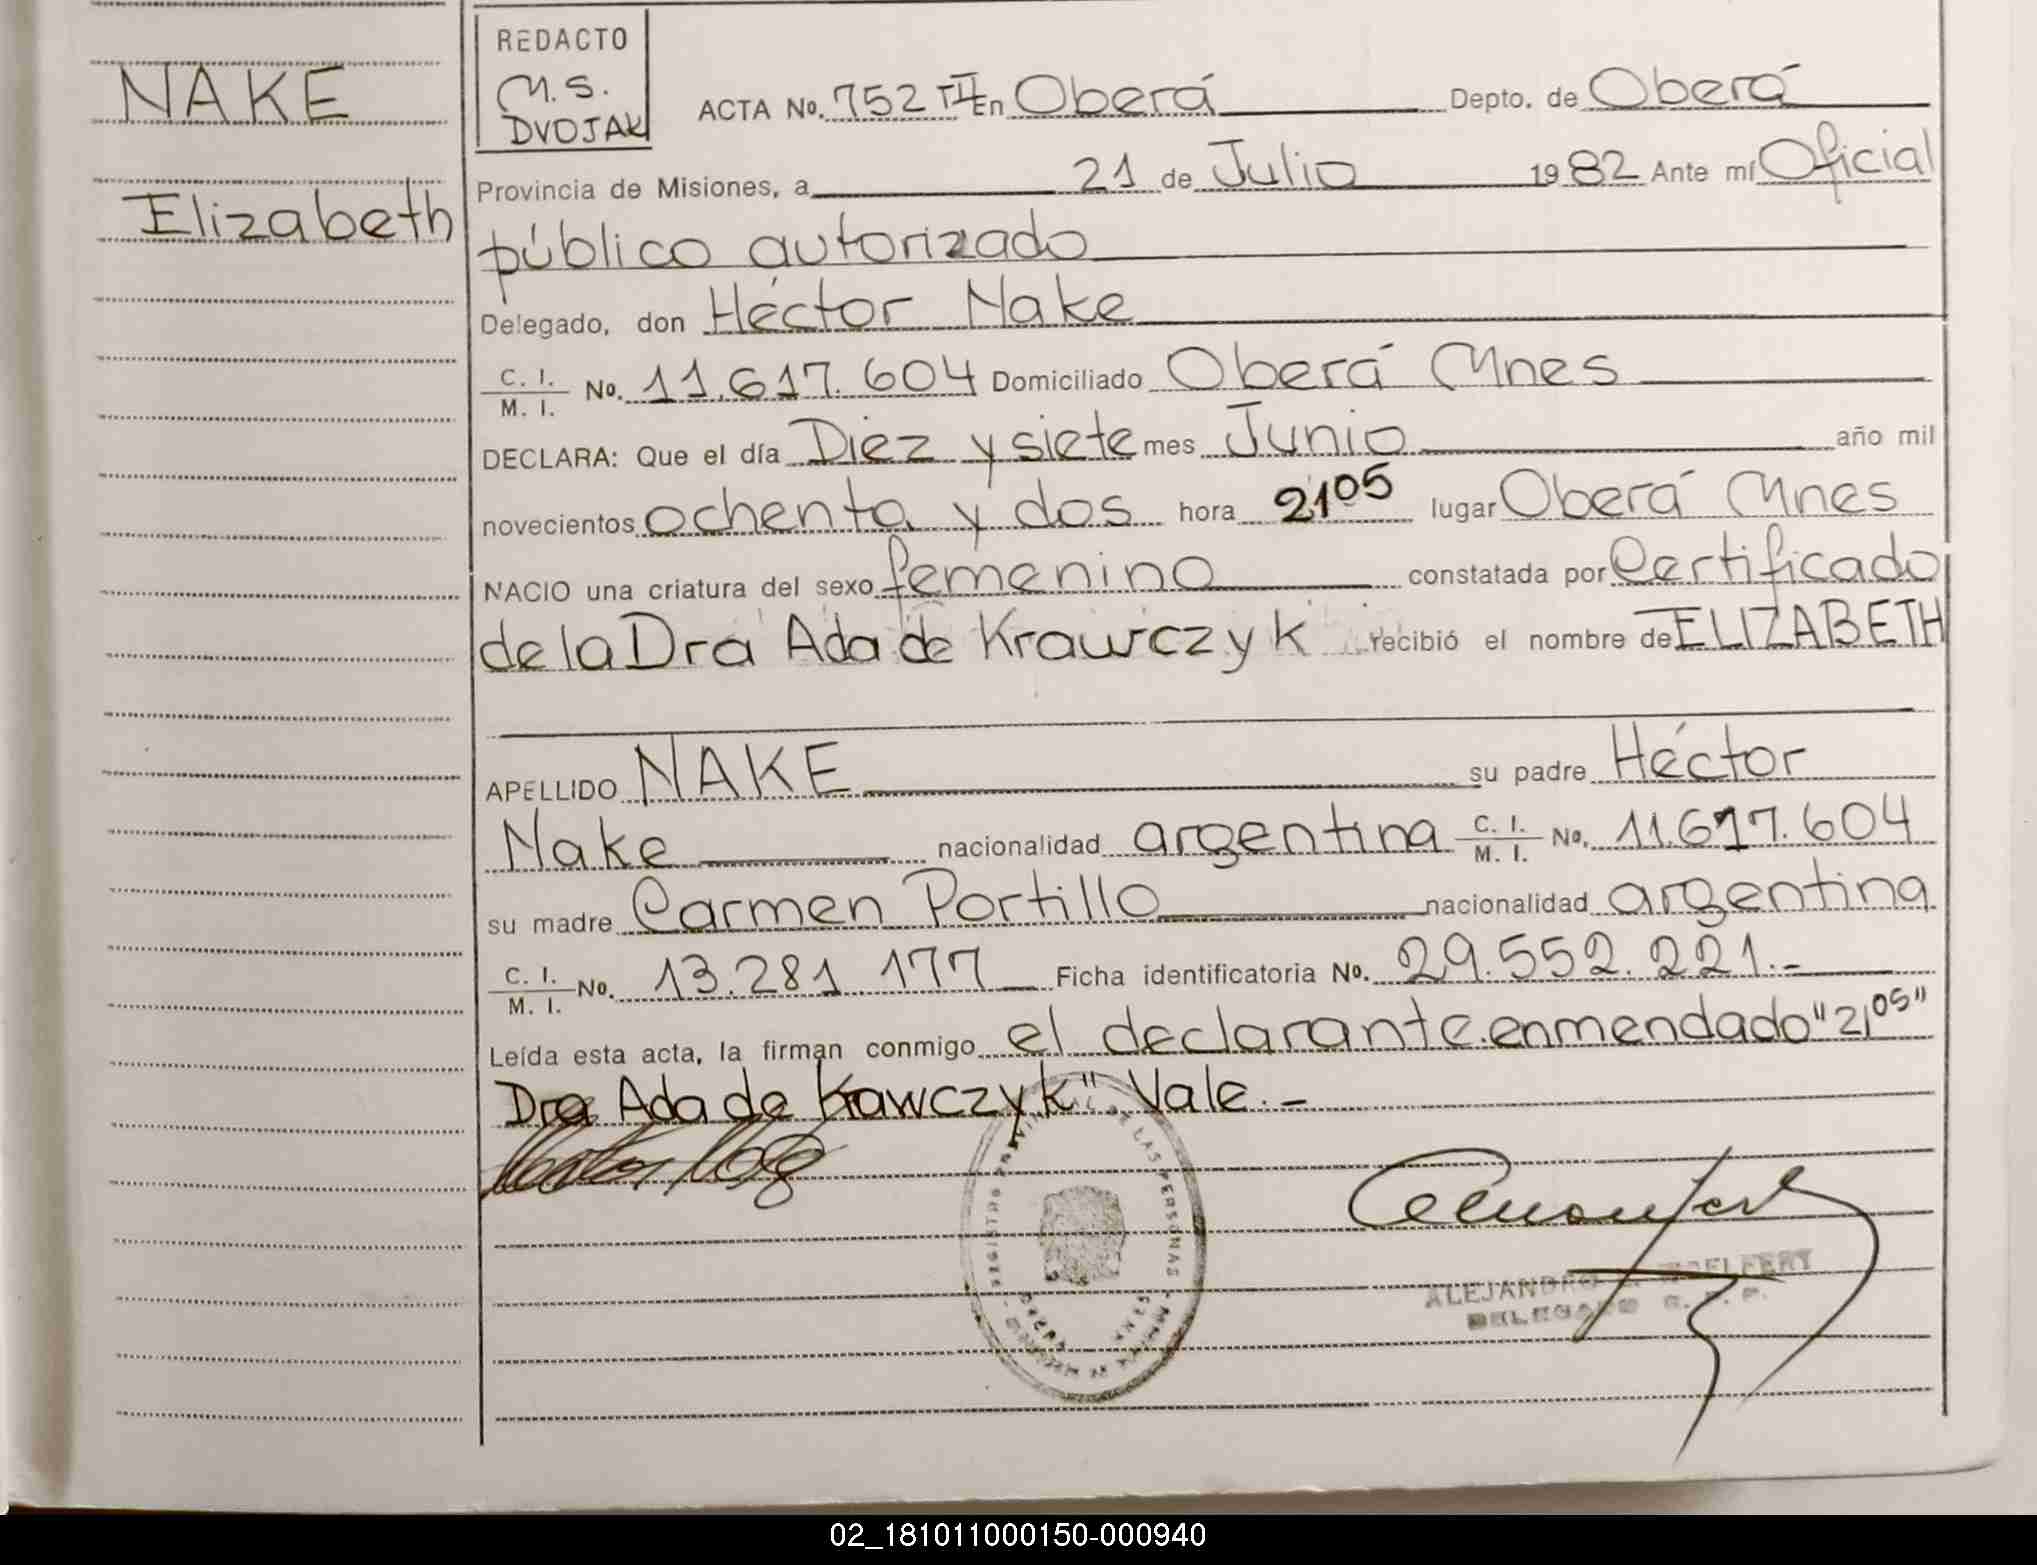 NAKE
Elizabeth
REDACTO
M.S.
DVOJAK
ACTA No. 752 TII En Oberá Depto. de Oberá
Provincia de Misiones, a 21 de Julio 1982 Ante mí Oficial
público autorizado
Delegado, don Héctor Nake
C. I. / M. I. No. 11.617.604 Domiciliado Oberá Mnes
DECLARA: Que el día Diez y siete mes Junio año mil
novecientos ochenta y dos hora 21 05 lugar Oberá Mnes
NACIO una criatura del sexo femenino constatada por Certificado
de la Dra Ada de Krawczyk recibió el nombre de ELIZABETH
APELLIDO NAKE su padre Héctor
Nake nacionalidad argentina C. I. / M. I. No. 11.617.604
su madre Carmen Portillo nacionalidad argentina
C. I. / M. I. No. 13.281.177 Ficha identificatoria No. 29.552.221.-
Leída esta acta, la firman conmigo el declarante. enmendado "21 05"
Dra Ada de Krawczyk" Vale.-
DE LAS PERSONAS
ALEJANDRO
DELEGADO
02_181011000150-000940